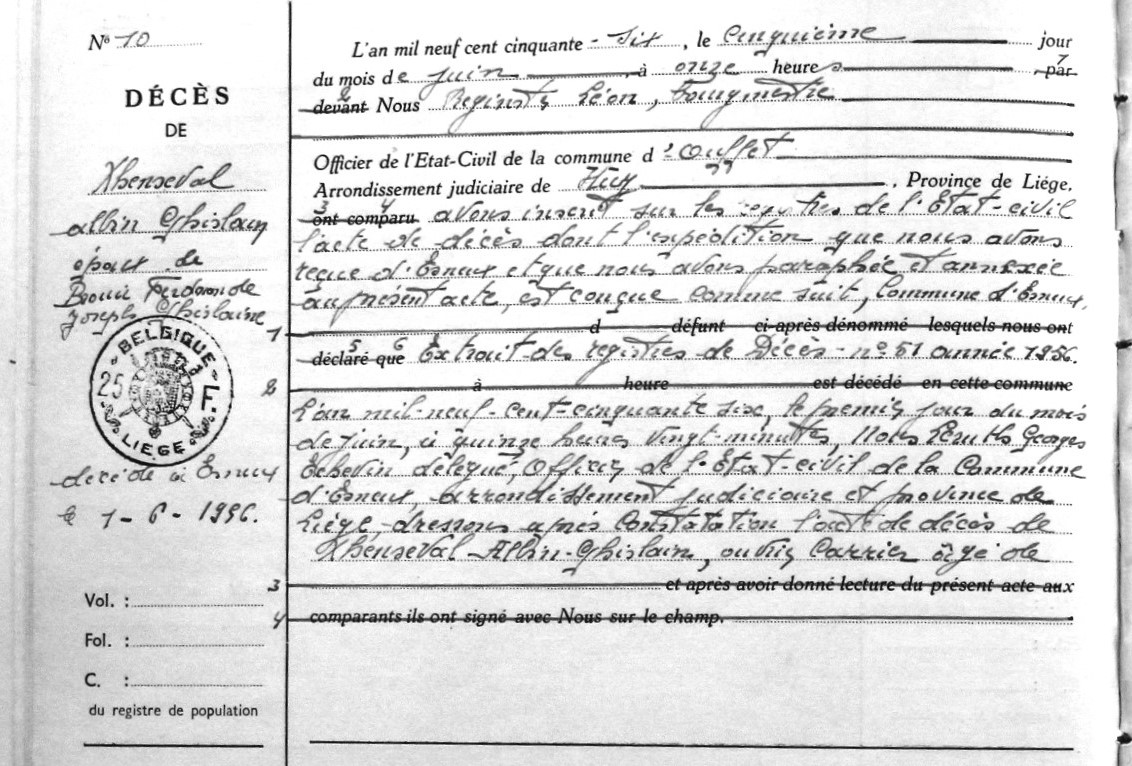 Nº 10
DÉCÈS
DE
Xhenseval
Albin Ghislain
époux de
Joseph Ghislaine
BELGIQUE
25 F.
LIEGE
décédé à Esneux
le 1-6-1956.
Vol. :
Fol. :
C. :
du registre de population
L'an mil neuf cent cinquante - six, le cinquième jour
du mois de juin, à onze heures par 7
devant 2 Nous Léon, Bourgmestre
Officier de l'Etat-Civil de la commune d'Ouffet
Arrondissement judiciaire de Huy, Province de Liége,
3 4
ont comparu avons inscrit sur les registres de l'Etat-civil
l'acte de décès dont l'expédition que nous avons
reçue d'Esneux et que nous avons paraphée et annexée
au présent acte, est conçue comme suit, Commune d'Esneux,
1 d défunt ci-après dénommé lesquels nous ont
5 6
déclaré que Extrait des registres de Décès - nº 51 année 1956.
2 à heure est décédé en cette commune
L'an mil-neuf-cent-cinquante six, le premier jour du mois
de juin, à quinze heures vingt-minutes, Nous Georges
Echevin délégué, Officier de l'Etat-civil de la Commune
d'Esneux arrondissement judiciaire et province de
Liége, dressons après Constatation l'acte de décès de
Xhenseval-Albin-Ghislain, ouvrier Carrier âgé de
3 et après avoir donné lecture du présent acte aux
4 comparants ils ont signé avec Nous sur le champ.